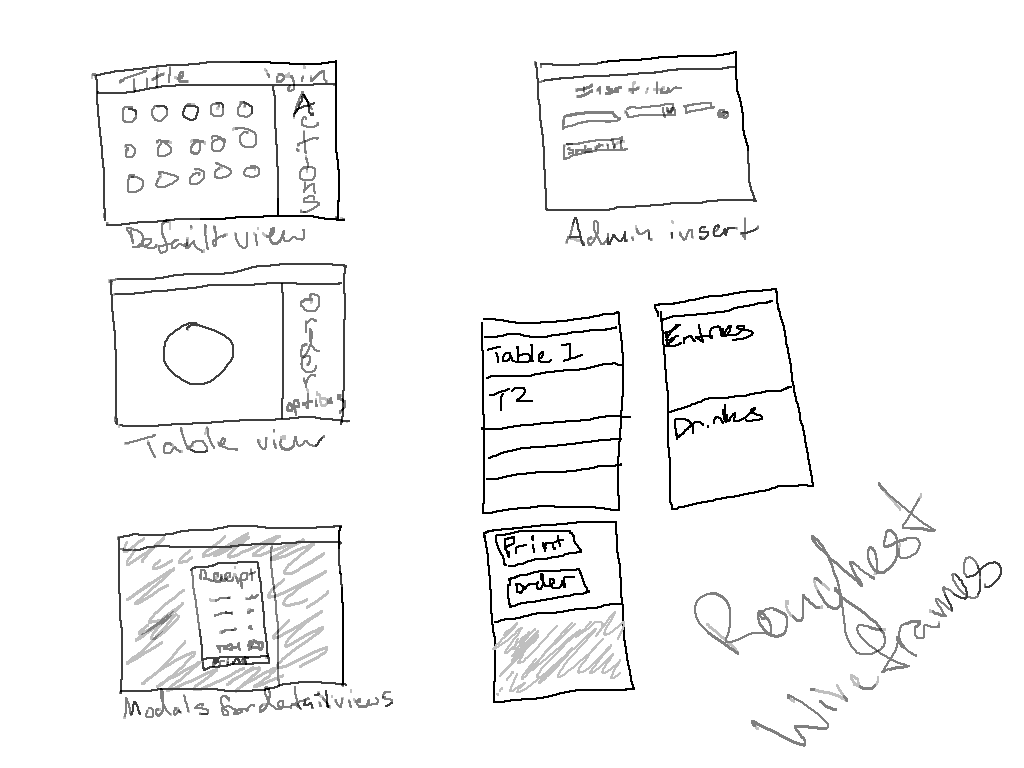 Title login
Actions
Default view
Insert item
Submit
Admin insert
Order
options
Table view
Table 1
T2
Entries
Drinks
Receipt
Modals for detail views
Print
Order
Roughest
Wireframes